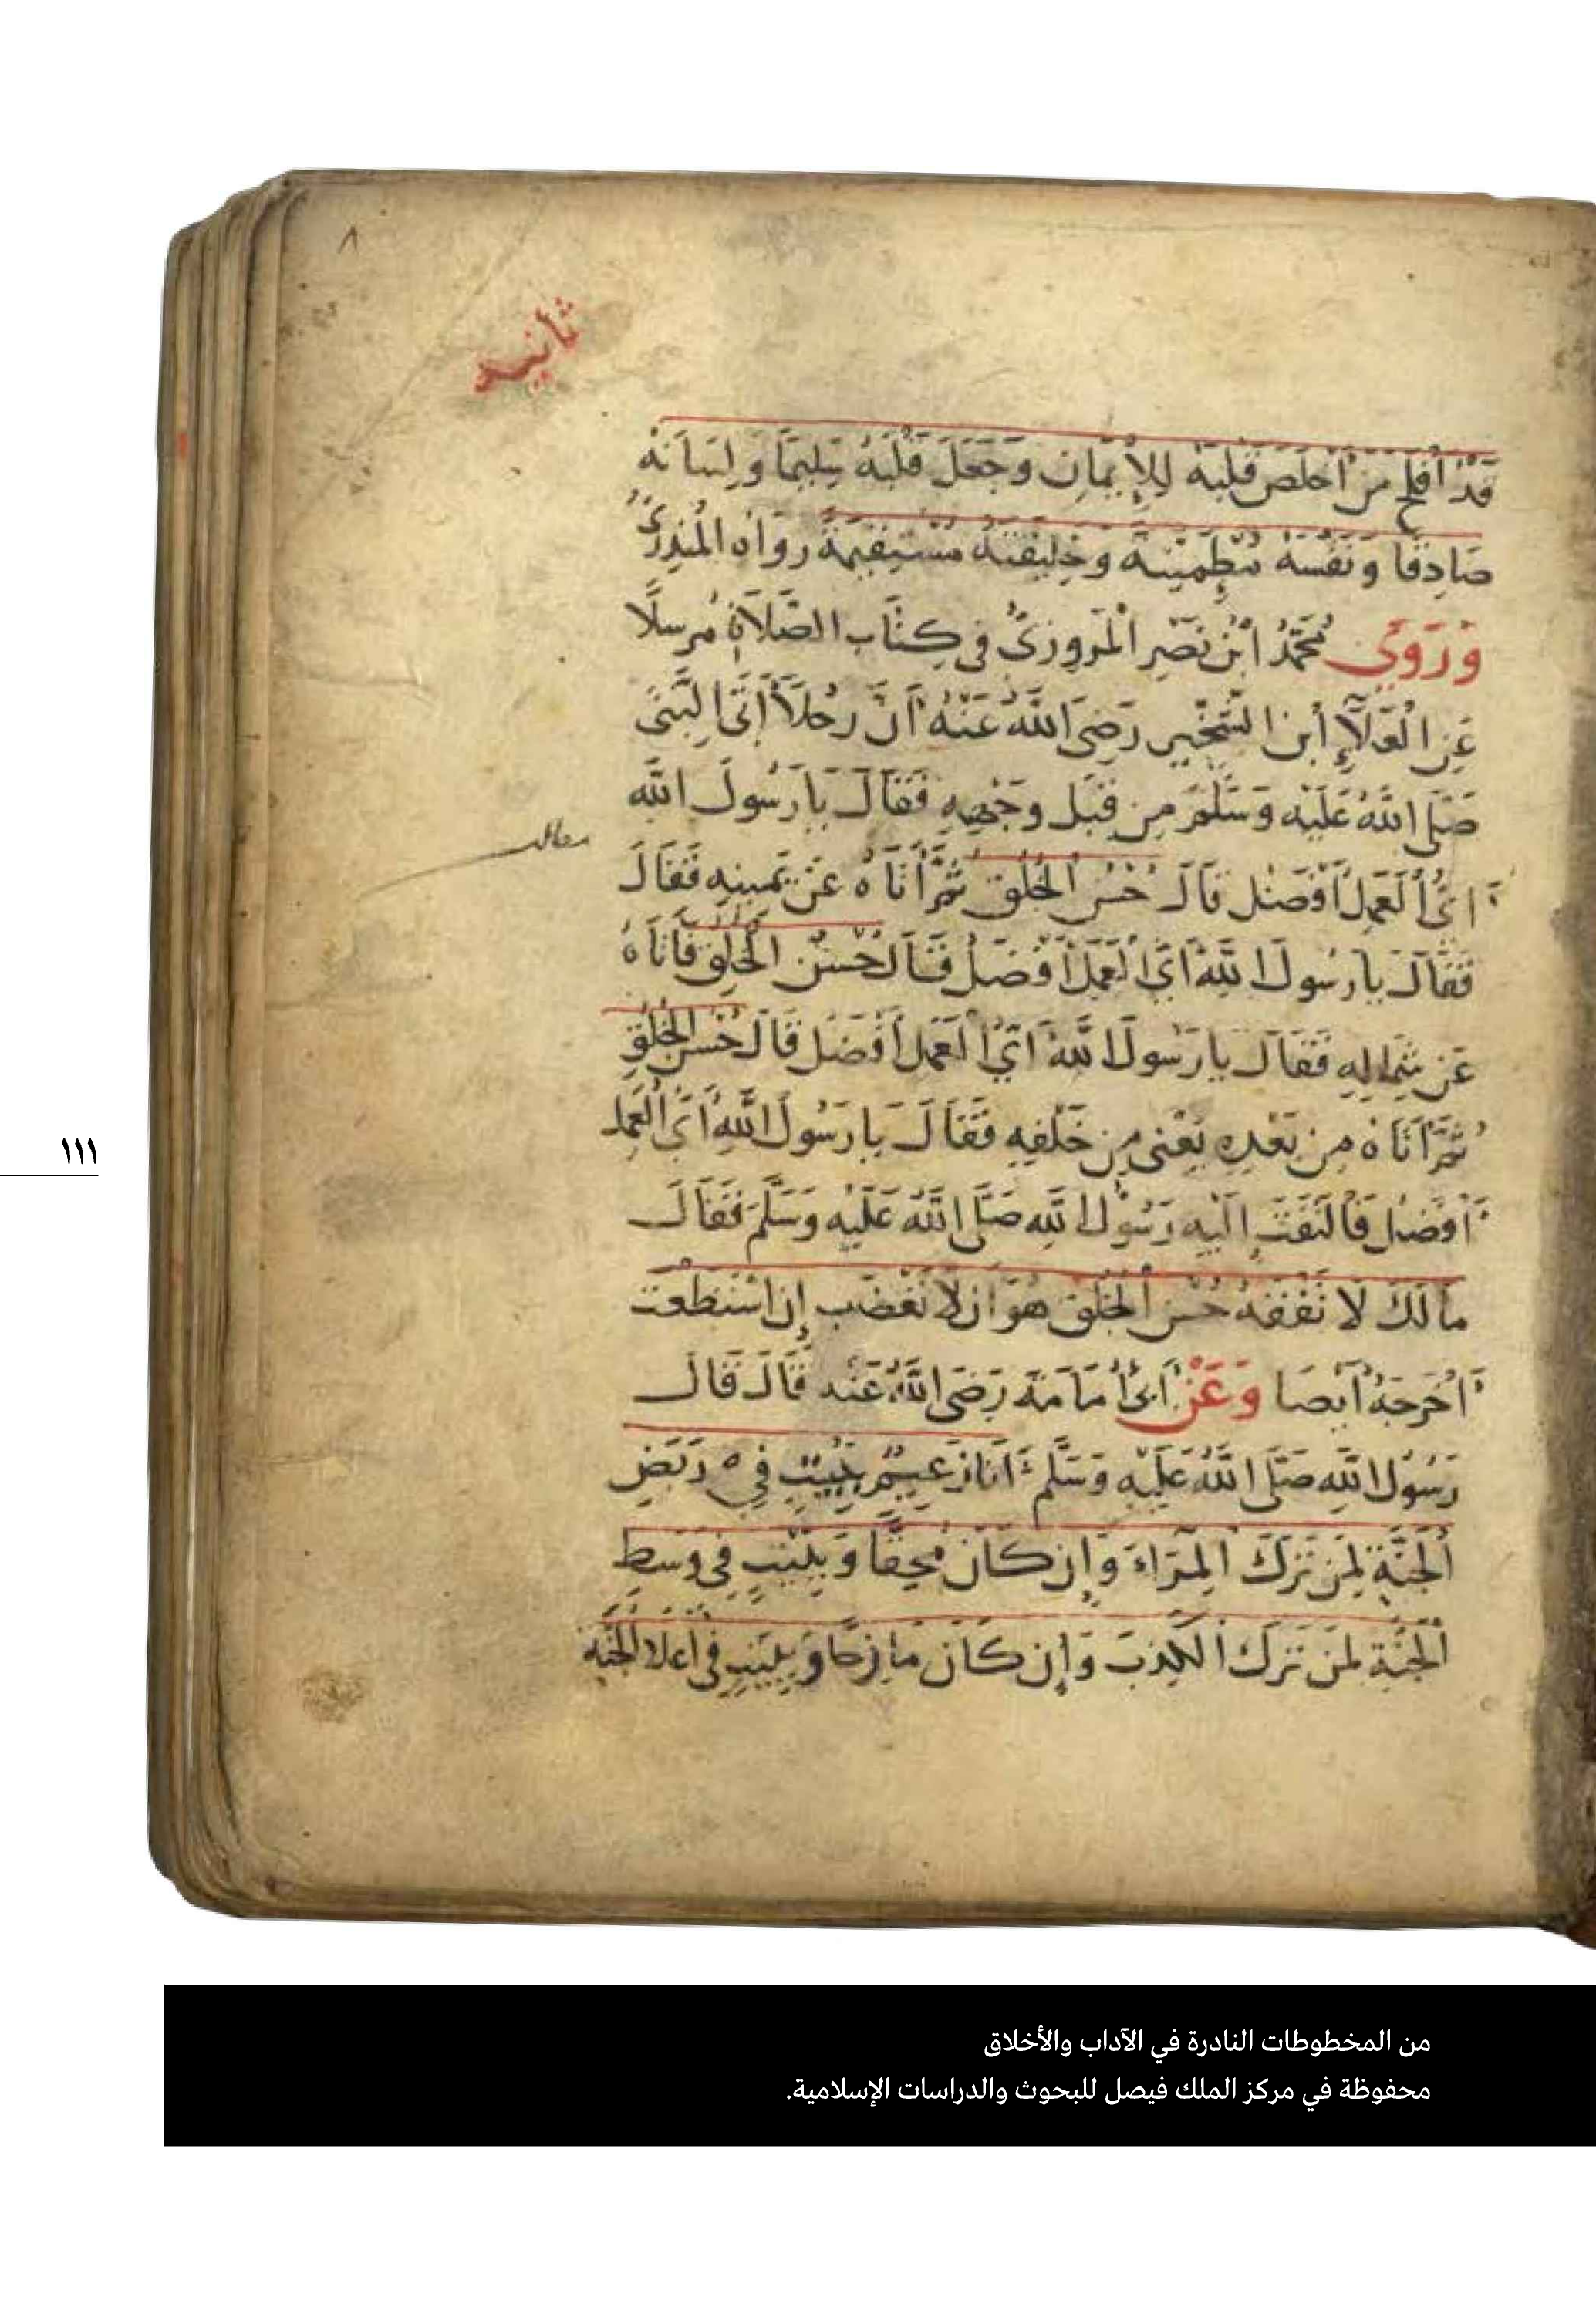 ٨
ثانيه
قَدْ أَفْلَحَ مَنْ أَخْلَصَ قَلْبَهُ لِلإِيمَانِ وَجَعَلَ قَلْبَهُ سَلِيمًا وَلِسَانَهُ
صَادِقًا وَنَفْسَهُ مُطْمَئِنَّةً وَخَلِيقَتَهُ مُسْتَقِيمَةً رَوَاهُ الْمُنْذِرِيُّ
وَرَوَي مُحَمَّدُ ابْنُ نَصْرِ الْمَرْوَزِيُّ فِي كِتَابِ الصَّلَاةِ مُرْسِلًا
عَنِ الْعَلَاءِ أبن الشِّخِّيرِ رَضِيَ اللَّهُ عَنْهُ أَنَّ رَجُلاً أَتَى النَّبِيَّ
صَلَّى اللَّهُ عَلَيْهِ وَسَلَّمَ مِنْ قِبَلِ وَجْهِهِ فَقَالَ يَا رَسُولَ اللَّهِ
أَيُّ الْعَمَلِ أَفْضَلُ قَالَ حُسْنُ الْخُلُقِ ثُمَّ أَتَاهُ عَنْ يَمِينِهِ فَقَالَ
فَقَالَ يَا رَسُولَ اللَّهِ أَيُّ الْعَمَلِ أَفْضَلُ قَالَ حُسْنُ الْخُلُقِ فَأَتَاهُ
عَنْ شِمَالِهِ فَقَالَ يَا رَسُولَ اللَّهِ أَيُّ الْعَمَلِ أَفْضَلُ قَالَ حُسْنُ الْخُلُقِ
ثُمَّ أَتَاهُ مِنْ بَعْدِهِ يَعْنِي مِنْ خَلْفِهِ فَقَالَ يَا رَسُولَ اللَّهِ أَيُّ الْعَمَلِ
أَفْضَلُ فَالْتَفَتَ إِلَيْهِ رَسُولُ اللَّهِ صَلَّى اللَّهُ عَلَيْهِ وَسَلَّمَ فَقَالَ
مَالَكَ لَا تَفْقَهُ حُسْنُ الْخُلُقِ هُوَ أَنْ لَا تَغْضَبَ إِنِ اسْتَطَعْتَ
أَخْرَجَهُ أَيْضًا وَعَنْ أَبِي أُمَامَةَ رَضِيَ اللَّهُ عَنْهُ قَالَ قَالَ
رَسُولُ اللَّهِ صَلَّى اللَّهُ عَلَيْهِ وَسَلَّمَ أَنَا زَعِيمٌ بِبَيْتٍ فِي رَبَضِ
الْجَنَّةِ لِمَنْ تَرَكَ الْمِرَاءَ وَإِنْ كَانَ مُحِقًّا وَبِبَيْتٍ فِي وَسَطِ
الْجَنَّةِ لِمَنْ تَرَكَ الْكَذِبَ وَإِنْ كَانَ مَازِحًا وَبِبَيْتٍ فِي أَعْلَا الْجَنَّةِ
١١١
من المخطوطات النادرة في الآداب والأخلاق
محفوظة في مركز الملك فيصل للبحوث والدراسات الإسلامية.